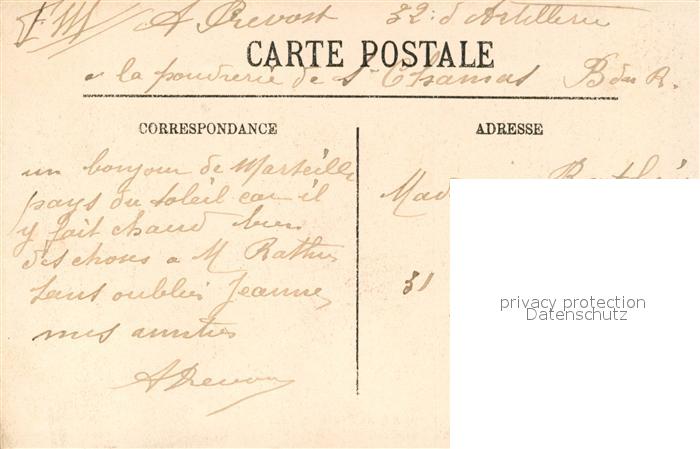 FM A Prevost 32e d'Artillerie
CARTE POSTALE
a la poudrerie de St Chamas B du R.
CORRESPONDANCE
ADRESSE
un bonjour de Marseille
pays du soleil car il
y fait chaud bien
des choses a M Rathie
sans oublier Jeanne
mes amities
A Prevost
31
privacy protection
Datenschutz